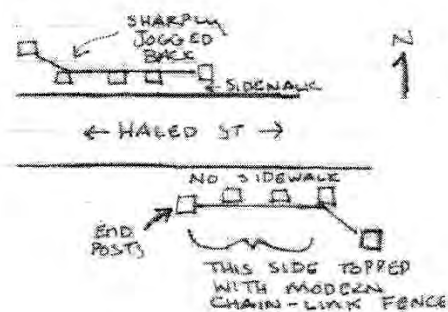 SHARPLY
JOGGED
BACK
N
SIDEWALK
← HALED ST →
NO SIDEWALK
END
POSTS
THIS SIDE TOPPED
WITH MODERN
CHAIN-LINK FENCE